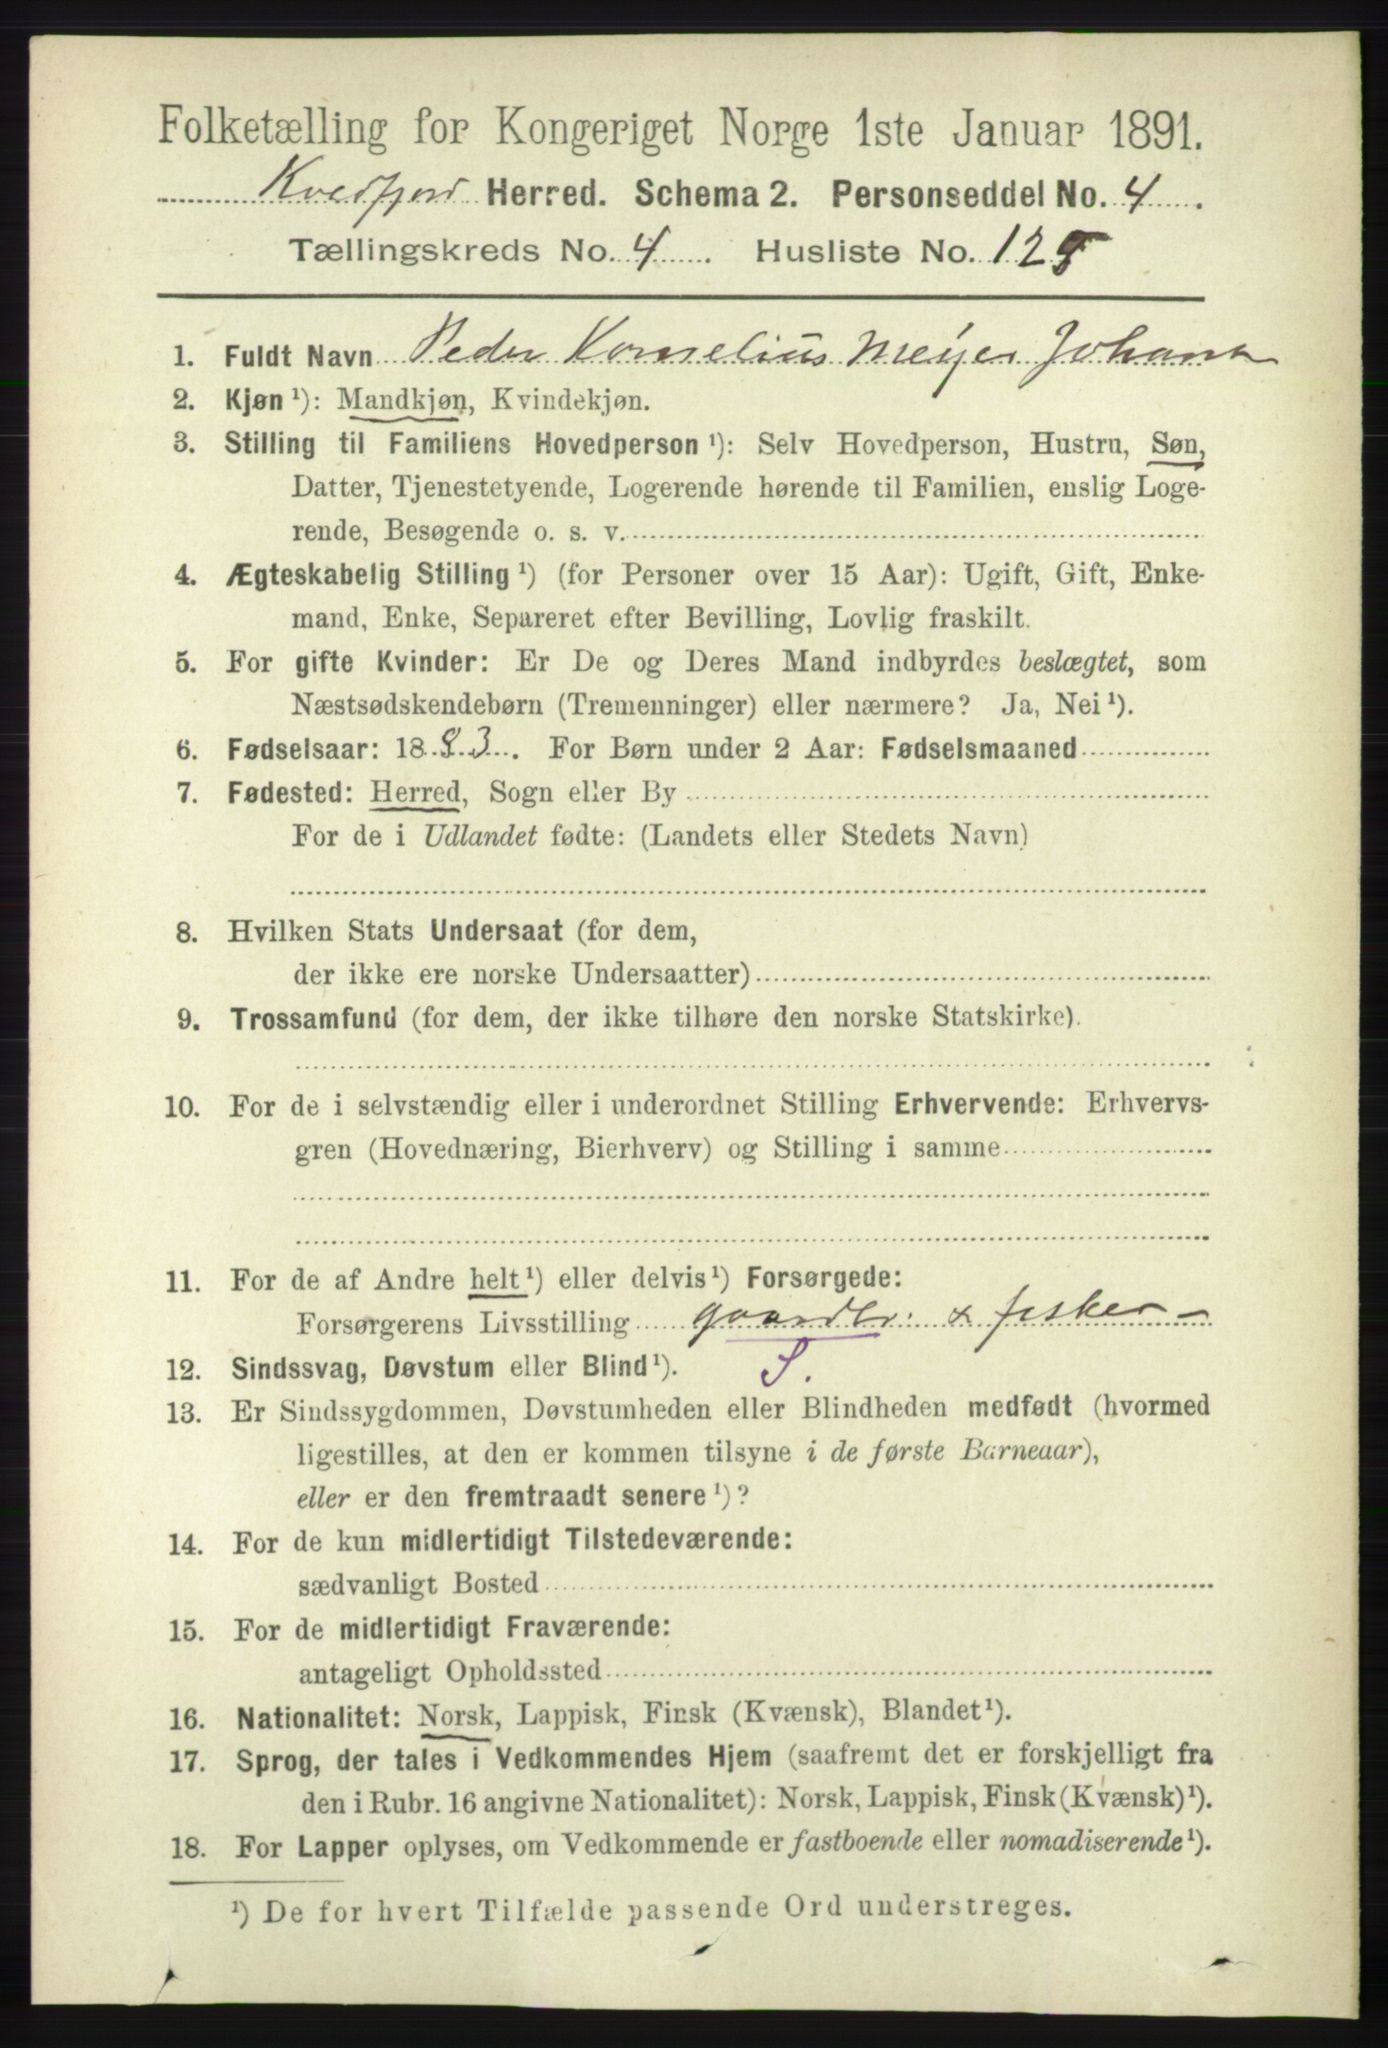 Folketælling for Kongeriget Norge 1ste Januar 1891.
Kvedfjord Herred. Schema 2. Personseddel No. 4
Tællingskreds No. 4 Husliste No. 125
1. Fuldt Navn Peder Kornelius Meyer Johans
2. Kjøn ¹): Mandkjøn, Kvindekjøn.
3. Stilling til Familiens Hovedperson ¹): Selv Hovedperson, Hustru, Søn,
Datter, Tjenestetyende, Logerende hørende til Familien, enslig Loge-
rende, Besøgende o. s. v.
4. Ægteskabelig Stilling ¹) (for Personer over 15 Aar): Ugift, Gift, Enke-
mand, Enke, Separeret efter Bevilling, Lovlig fraskilt.
5. For gifte Kvinder: Er De og Deres Mand indbyrdes beslægtet, som
Næstsødskendebørn (Tremenninger) eller nærmere? Ja, Nei ¹).
6. Fødselsaar: 1883. For Børn under 2 Aar: Fødselsmaaned
7. Fødested: Herred, Sogn eller By
For de i Udlandet fødte: (Landets eller Stedets Navn)
8. Hvilken Stats Undersaat (for dem,
der ikke ere norske Undersaatter)
9. Trossamfund (for dem, der ikke tilhøre den norske Statskirke).
10. For de i selvstændig eller i underordnet Stilling Erhvervende: Erhvervs-
gren (Hovednæring, Bierhverv) og Stilling i samme
11. For de af Andre helt ¹) eller delvis ¹) Forsørgede:
Forsørgerens Livsstilling gaardbr. & fisker
12. Sindssvag, Døvstum eller Blind ¹). S.
13. Er Sindssygdommen, Døvstumheden eller Blindheden medfødt (hvormed
ligestilles, at den er kommen tilsyne i de første Barneaar),
eller er den fremtraadt senere ¹)?
14. For de kun midlertidigt Tilstedeværende:
sædvanligt Bosted
15. For de midlertidigt Fraværende:
antageligt Opholdssted
16. Nationalitet: Norsk, Lappisk, Finsk (Kvænsk), Blandet ¹).
17. Sprog, der tales i Vedkommendes Hjem (saafremt det er forskjelligt fra
den i Rubr. 16 angivne Nationalitet): Norsk, Lappisk, Finsk (Kvænsk) ¹).
18. For Lapper oplyses, om Vedkommende er fastboende eller nomadiserende ¹).
¹) De for hvert Tilfælde passende Ord understreges.